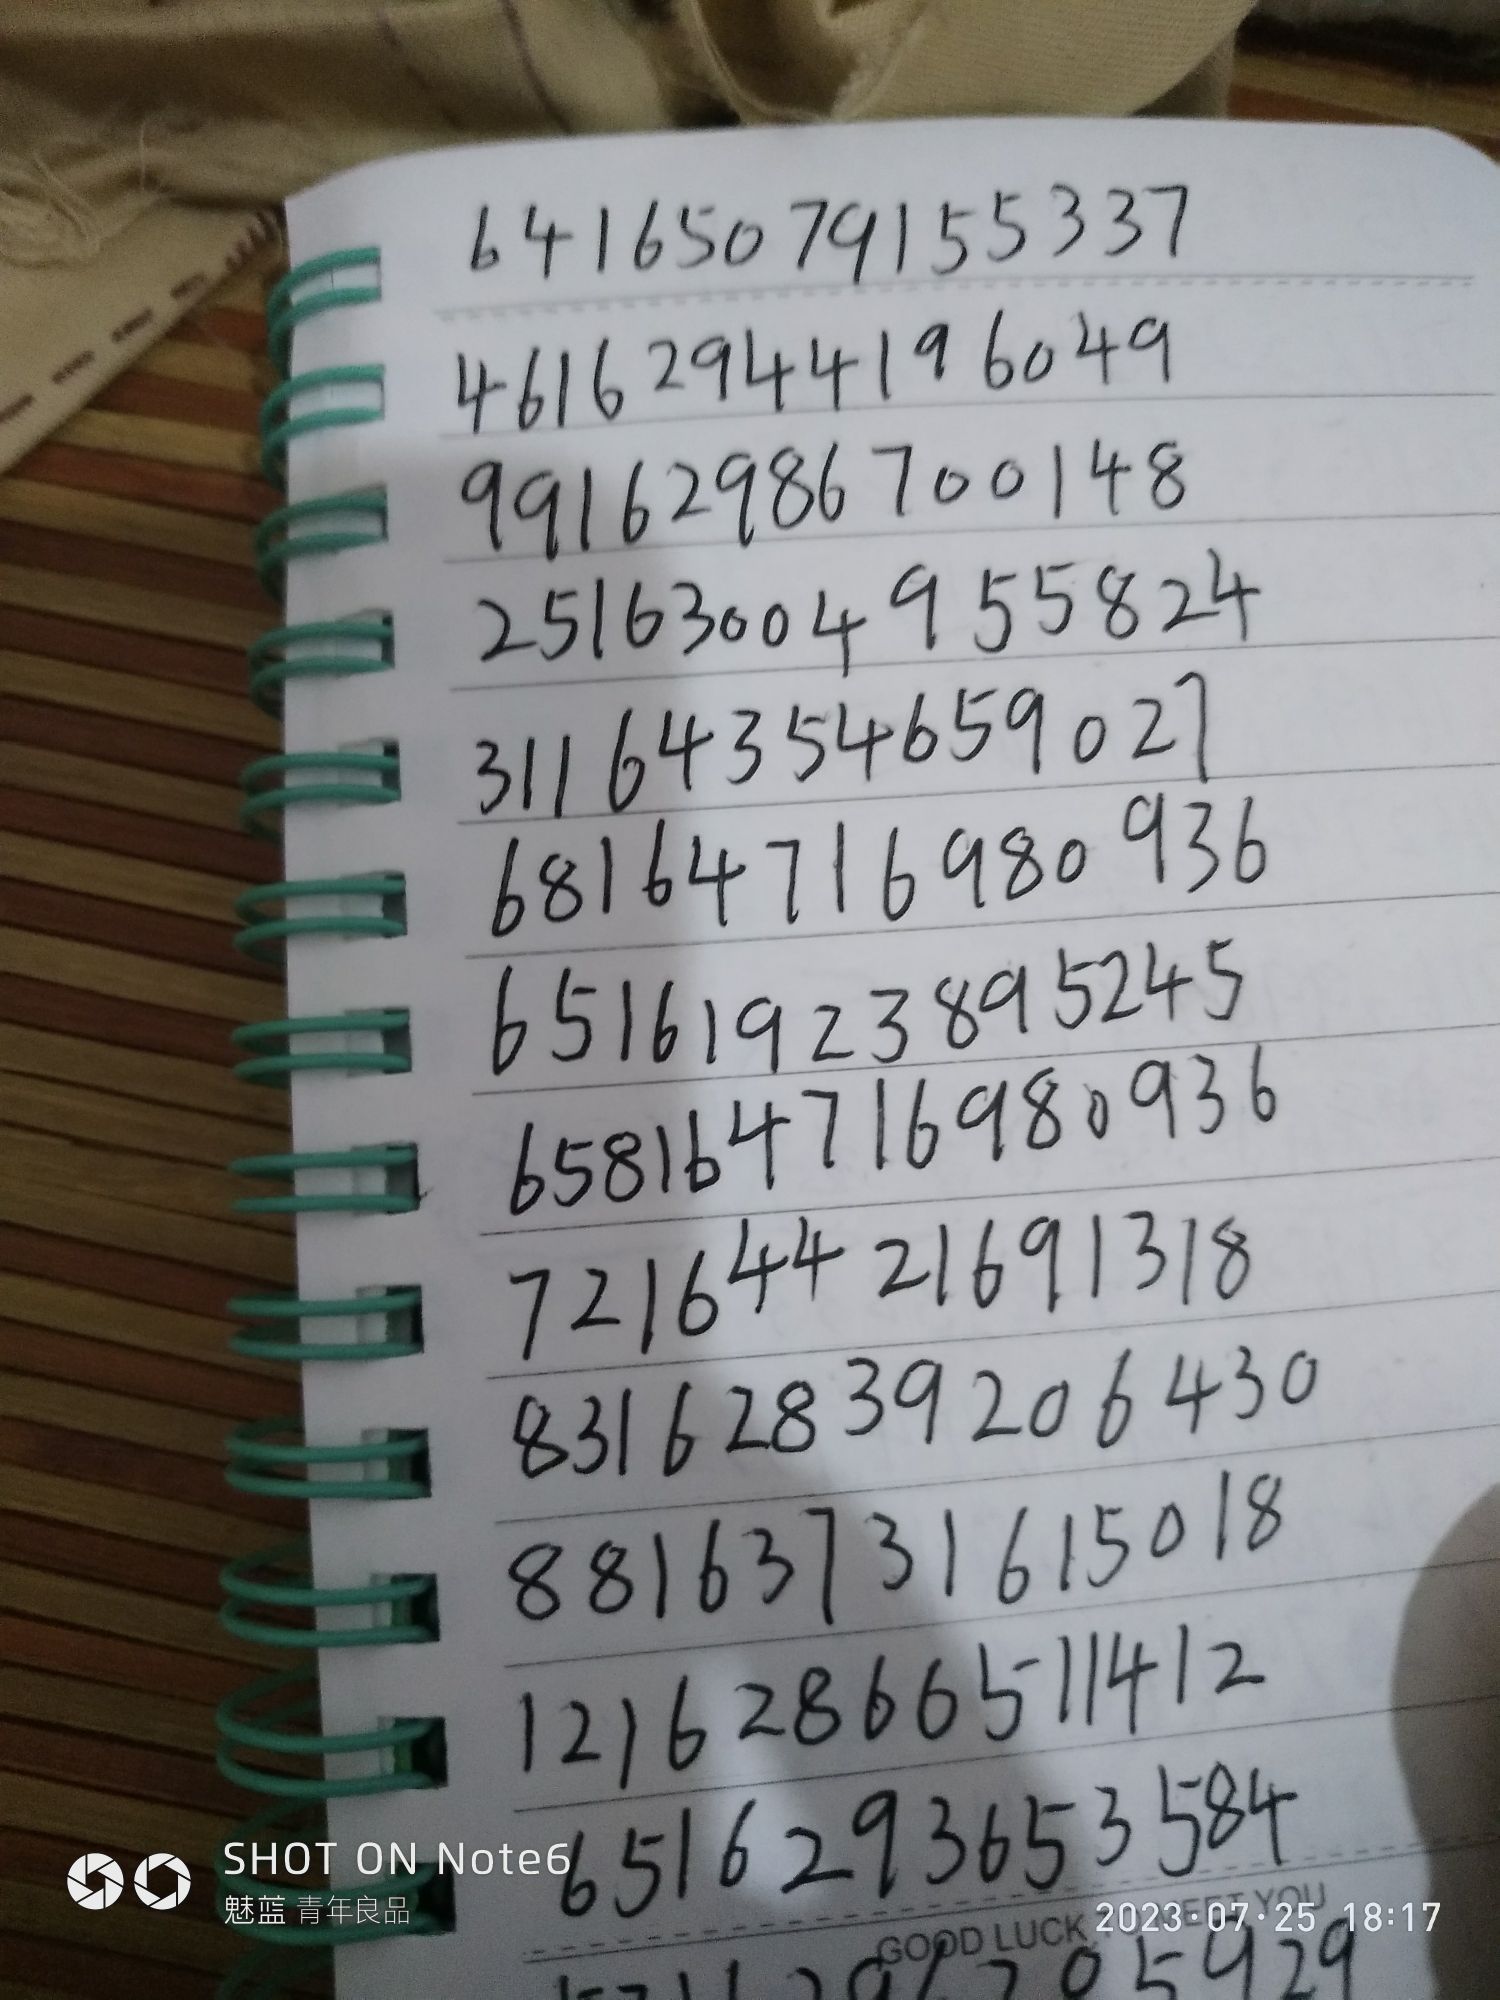 64165079155337
46162944196049
99162986700148
25163004955824
31164354659027
68164716980936
65161923895245
658164716980936
72164421691318
83162839206430
88163731615018
12162866511412
65162936535 84
GOOD LUCK YOU
SHOT ON Note6
魅蓝 青年良品
2023·07·25 18:17